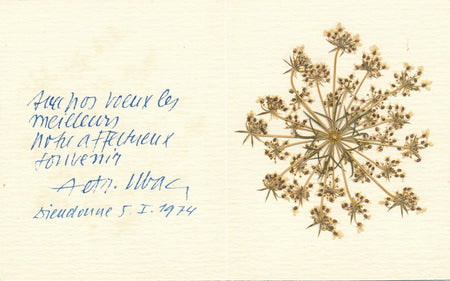 Avec nos voeux les
meilleurs
notre affectueux
souvenir
Ubac
Dieudonne 5. I. 1974